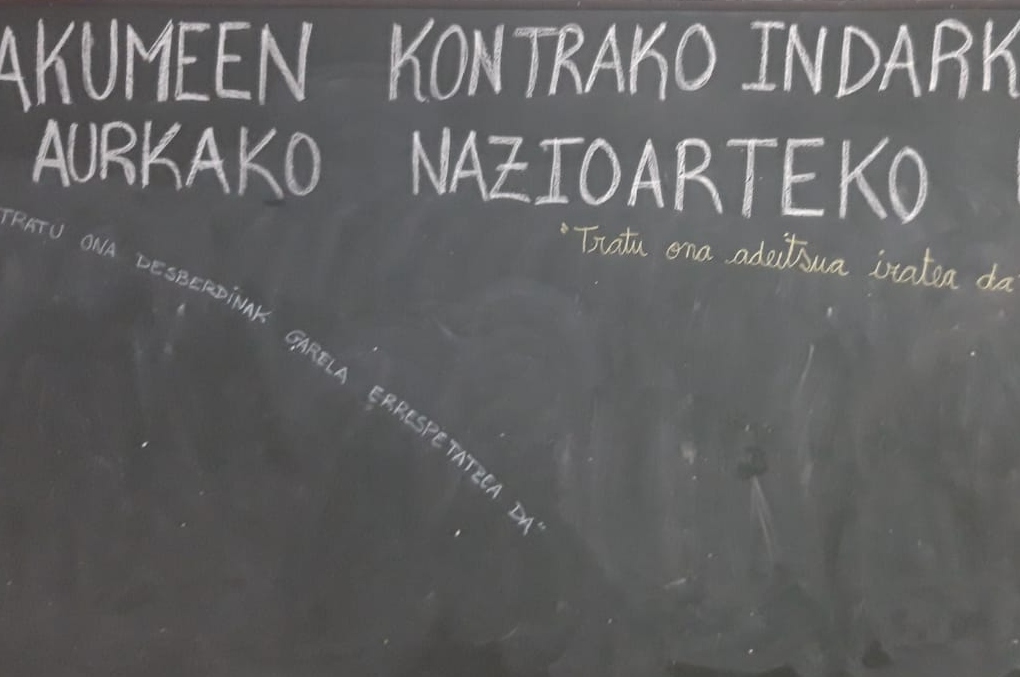 AKUMEEN KONTRAKO INDARK
AURKAKO NAZIOARTEKO
TRATU ONA DESBERDINAK GARELA ERRESPETATZEA DA"
"Tratu ona adeitsua izatea da"